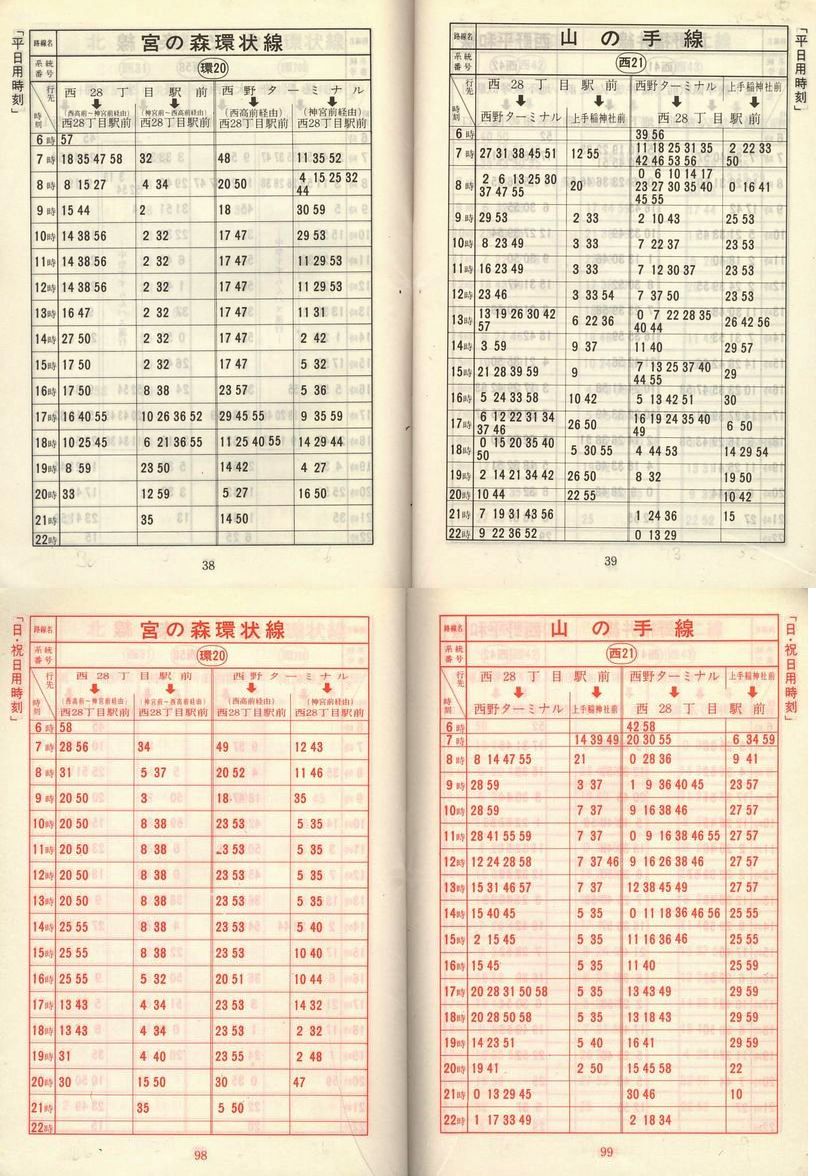 「平日用時刻」
路線名 宮の森環状線
系統番号 環20
行先 時刻
西28丁目駅前 西野ターミナル
(西高前~神宮前経由) (神宮前~西高前経由) (西高前経由) (神宮前経由)
西28丁目駅前 西28丁目駅前 西28丁目駅前 西28丁目駅前
6時 57
7時 18 35 47 58 32 48 11 35 52
8時 8 15 27 4 34 20 50 4 15 25 32
44
9時 15 44 2 18 30 59
10時 14 38 56 2 32 17 47 29 53
11時 14 38 56 2 32 17 47 11 29 53
12時 14 38 56 2 32 17 47 11 29 53
13時 16 47 2 32 17 47 11 31
14時 27 50 2 32 17 47 2 42
15時 17 50 2 32 17 47 5 32
16時 17 50 8 38 23 57 5 36
17時 16 40 55 10 26 36 52 29 45 55 9 35 59
18時 10 25 45 6 21 36 55 11 25 40 55 14 29 44
19時 8 59 23 50 14 42 4 27
20時 33 12 59 5 27 16 50
21時 35 14 50
22時
38
「平日用時刻」
路線名 山の手線
系統番号 西21
行先 時刻
西28丁目駅前 西野ターミナル 上手稲神社前
西野ターミナル 上手稲神社前 西28丁目駅前
6時 39 56
7時 27 31 38 45 51 12 55 11 18 25 31 35 2 22 33
42 46 53 56 50
8時 2 6 13 25 30 20 0 6 10 14 17 0 16 41
37 47 55 23 27 30 35 40
45 55
9時 29 53 2 33 2 10 43 25 53
10時 8 23 49 3 33 7 22 37 23 53
11時 16 23 49 3 33 7 12 30 37 23 53
12時 23 46 3 33 54 7 37 50 23 53
13時 13 19 26 30 42 6 22 36 0 7 22 28 35 26 42 56
57 40 44
14時 3 59 9 37 11 40 29 57
15時 21 28 39 59 9 7 13 25 37 40 29
44 55
16時 5 24 33 58 10 42 5 13 42 51 30
17時 6 12 22 31 34 26 50 16 19 24 35 40 6 50
37 46 49
18時 0 15 20 35 40 5 30 55 4 44 53 14 29 54
50
19時 2 14 21 34 42 26 50 8 32 19 50
20時 10 44 22 55 10 42
21時 7 19 31 43 56 1 24 36 15
22時 9 22 36 52 0 13 29
39
「日・祝日用時刻」
路線名 宮の森環状線
系統番号 環20
行先 時刻
西28丁目駅前 西野ターミナル
(西高前~神宮前経由) (神宮前~西高前経由) (西高前経由) (神宮前経由)
西28丁目駅前 西28丁目駅前 西28丁目駅前 西28丁目駅前
6時 58
7時 28 56 34 49 12 43
8時 31 5 37 20 52 11 46
9時 20 50 3 18 35
10時 20 50 8 38 23 53 5 35
11時 20 50 8 38 3 53 5 35
12時 20 50 8 38 23 53 5 35
13時 20 50 8 38 23 53 5 35
14時 25 55 8 38 23 53 5 40
15時 25 55 8 38 23 53 10 40
16時 25 55 5 32 20 51 10 44
17時 13 43 4 34 23 53 14 32
18時 13 43 4 34 23 53 2 32
19時 31 4 40 23 55 2 48
20時 30 15 50 30 47
21時 35 5 50
22時
98
「日・祝日用時刻」
路線名 山の手線
系統番号 西21
行先 時刻
西28丁目駅前 西野ターミナル 上手稲神社前
西野ターミナル 上手稲神社前 西28丁目駅前
6時 42 58
7時 14 39 49 20 30 55 6 34 59
8時 8 14 47 55 21 0 28 36 9 41
9時 28 59 3 37 1 9 36 40 45 23 57
10時 28 59 7 37 9 16 38 46 27 57
11時 28 41 55 59 7 37 0 9 16 38 46 55 27 57
12時 12 24 28 58 7 37 46 9 16 26 38 46 27 57
13時 15 31 46 57 7 37 12 38 45 49 27 57
14時 15 40 45 5 35 0 11 18 36 46 56 25 55
15時 2 15 45 5 35 11 16 36 46 25 55
16時 15 45 5 35 11 40 25 59
17時 20 28 31 50 58 5 35 13 43 49 29 59
18時 20 28 50 58 5 35 13 18 43 29 59
19時 14 23 51 5 40 16 41 29 59
20時 19 41 2 50 15 45 58 22
21時 0 13 29 45 30 46 10
22時 1 17 33 49 2 18 34
99